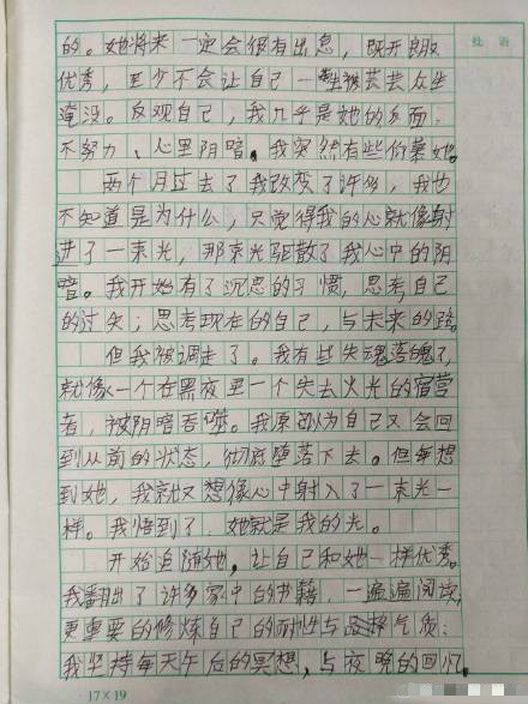 批语
的。她将来一定会很有出息，既开朗又
优秀，至少不会让自己一生被芸芸众生
淹没。反观自己，我几乎是她的反面：
不努力、心里阴暗。我突然有些仰慕她。
两个月过去了我改变了许多，我也
不知道是为什么，只觉得我的心就像射
进了一束光，那束光驱散了我心中的阴
暗。我开始有了沉思的习惯，思考自己
的过失；思考现在的自己，与未来的路。
但我被调走了。我有些失魂落魄了，
就像一个在黑夜里一个失去火光的宿营
者，被阴暗吞噬。我原以为自己又会回
到从前的状态，彻底堕落下去。但每想
到她，我就又想像心中射入了一束光一
样。我悟到了，她就是我的光。
开始追随她，让自己和她一样优秀。
我翻出了许多家中的书籍，一遍遍阅读，
更重要的修炼自己的耐性与品格气质；
我坚持每天午后的冥想，与夜晚的回忆。
17×19